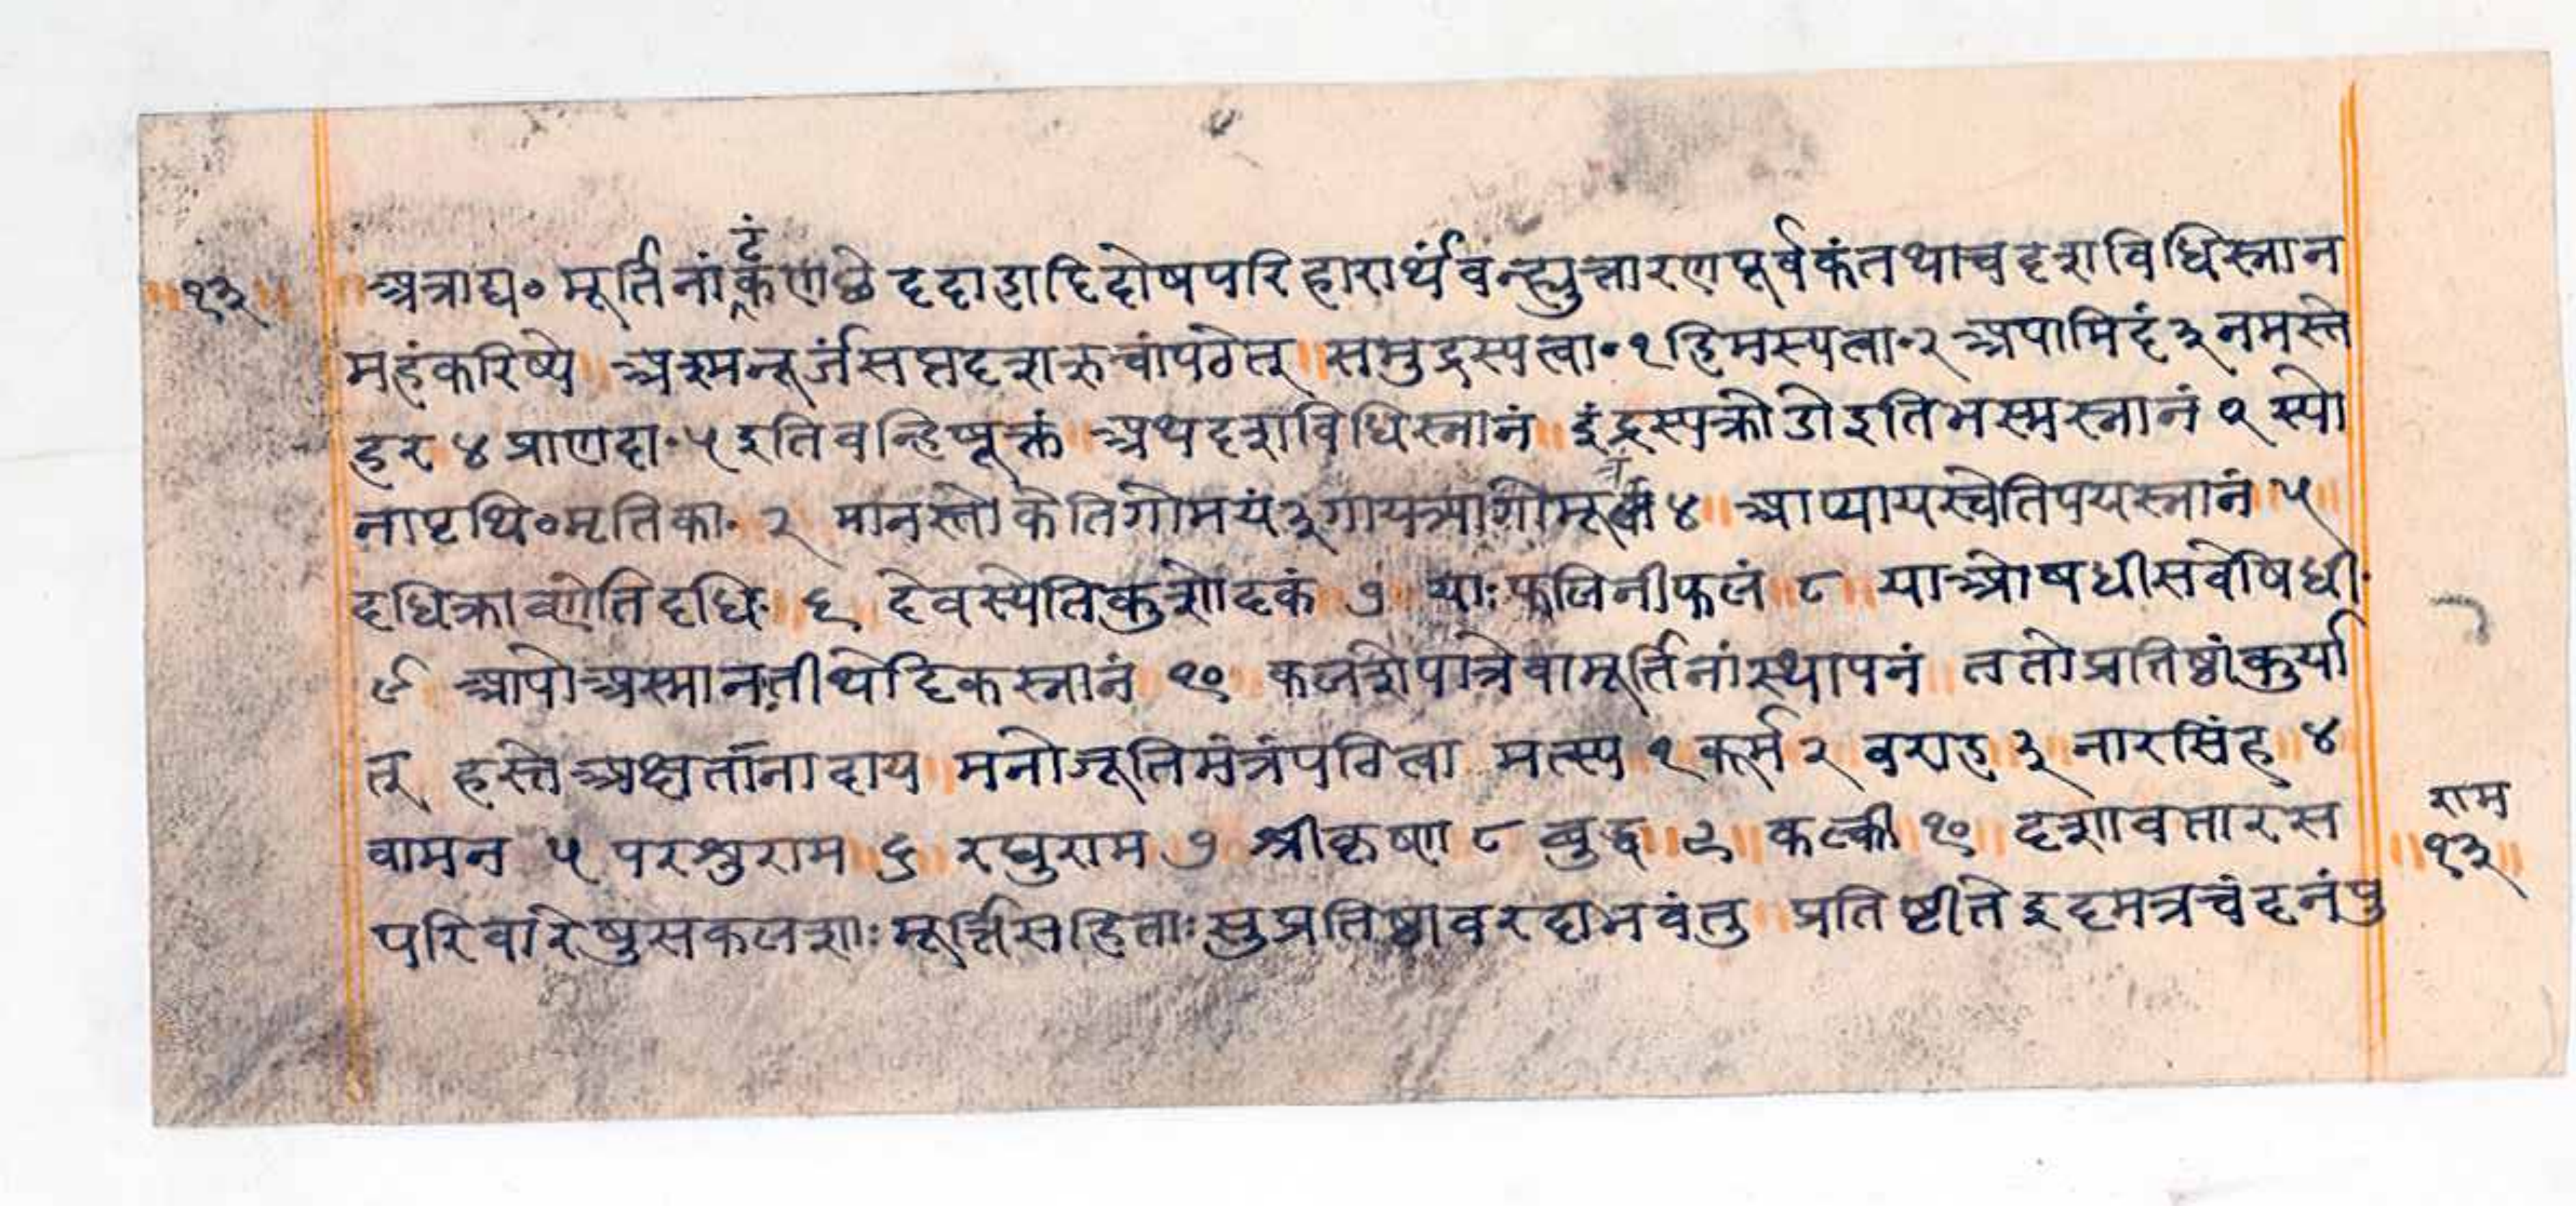 ॥१३॥ ॥अत्राद्य० मूर्तिनां टंकणछेददाहादिदोषपरिहारार्थं वन्ह्युत्तारणपूर्वकं तथा च दशविधिस्नान
महं करिष्ये ॥ अश्मन्नूर्जं सप्तदशऋचां पठेत् ॥ समुद्रस्यत्वा॰१ हिमस्यत्वा॰२ अपामिदं ३ नमस्ते
हर ४ प्राणदा॰५ इति वन्हिसूक्तं ॥ अथ दशविधिस्नानं ॥ इंद्रस्य क्रोडो इति भस्मस्नानं १ स्यो
नापृथि० मृतिका॰ २ मानस्तोकेति गोमयं ३ गायत्र्या गोमूत्रं ४ ॥ आप्यायस्वेति पयस्नानं ५
दधिक्राव्णेति दधि॰ ६ देवस्येति कुशोदकं ७ याःफलिनी फलं ८ ॥ या ओषधी सर्वोषधी॰
९ आपोअस्मान॰ तीर्थोदकस्नानं १० कलशेपात्रे वा मूर्तिनां स्थापनं ॥ ततो प्रतिष्ठां कुर्या
त् हस्ते अक्षतानादाय ॥ मनोजूतिमंत्रं पठित्वा मत्स्य १ कूर्म २ वराह ३ नारसिंह ४
वामन ५ परशुराम ६ रघुराम ७ श्रीकृष्ण ८ बुद्ध ९ कल्की १० दशावतार स
परिवारेषु सकलशाः मूर्त्तिसहिताः सुप्रतिष्ठा वरदा भवंतु ॥ प्रतिष्टीते इदमत्र चंदनं पु
राम
॥१३॥